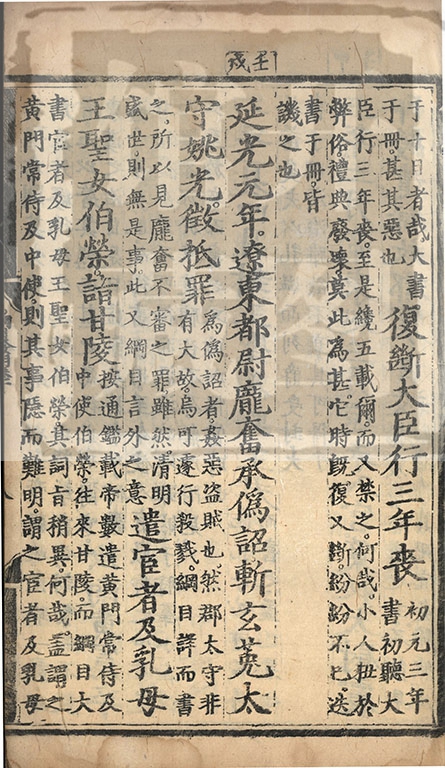 壬戌
于十日者哉。大書
于冊甚其惡也
復斷大臣行三年喪
初元三年
書初聽大
臣行三年喪。至是纔五載爾。而又禁之。何哉。小人狃於
弊俗。禮典廢壞莫此為甚。它時旣復又斷。紛紛不已。迭
書于冊。皆
譏之也
延光元年。遼東都尉龐奮承偽詔斬玄莬太
守姚光。徵抵罪
為偽詔者姦惡盜賊也。然郡太守非
有大故。烏可遽行殺戮。綱目詳而書
之。所以見龐奮不審之罪雖然。清明
盛世則無是事。此又綱目言外之意
遣宦者及乳母
王聖女伯榮詣甘陵
按通鑑載帝數遣黃門常侍及
中使伯榮。往來甘陵。而綱目大
書宦者及乳母王聖女伯榮。其詞旨稍異。何哉。蓋謂之
黃門常侍及中使。則其事隱而難明。謂之宦者及乳母